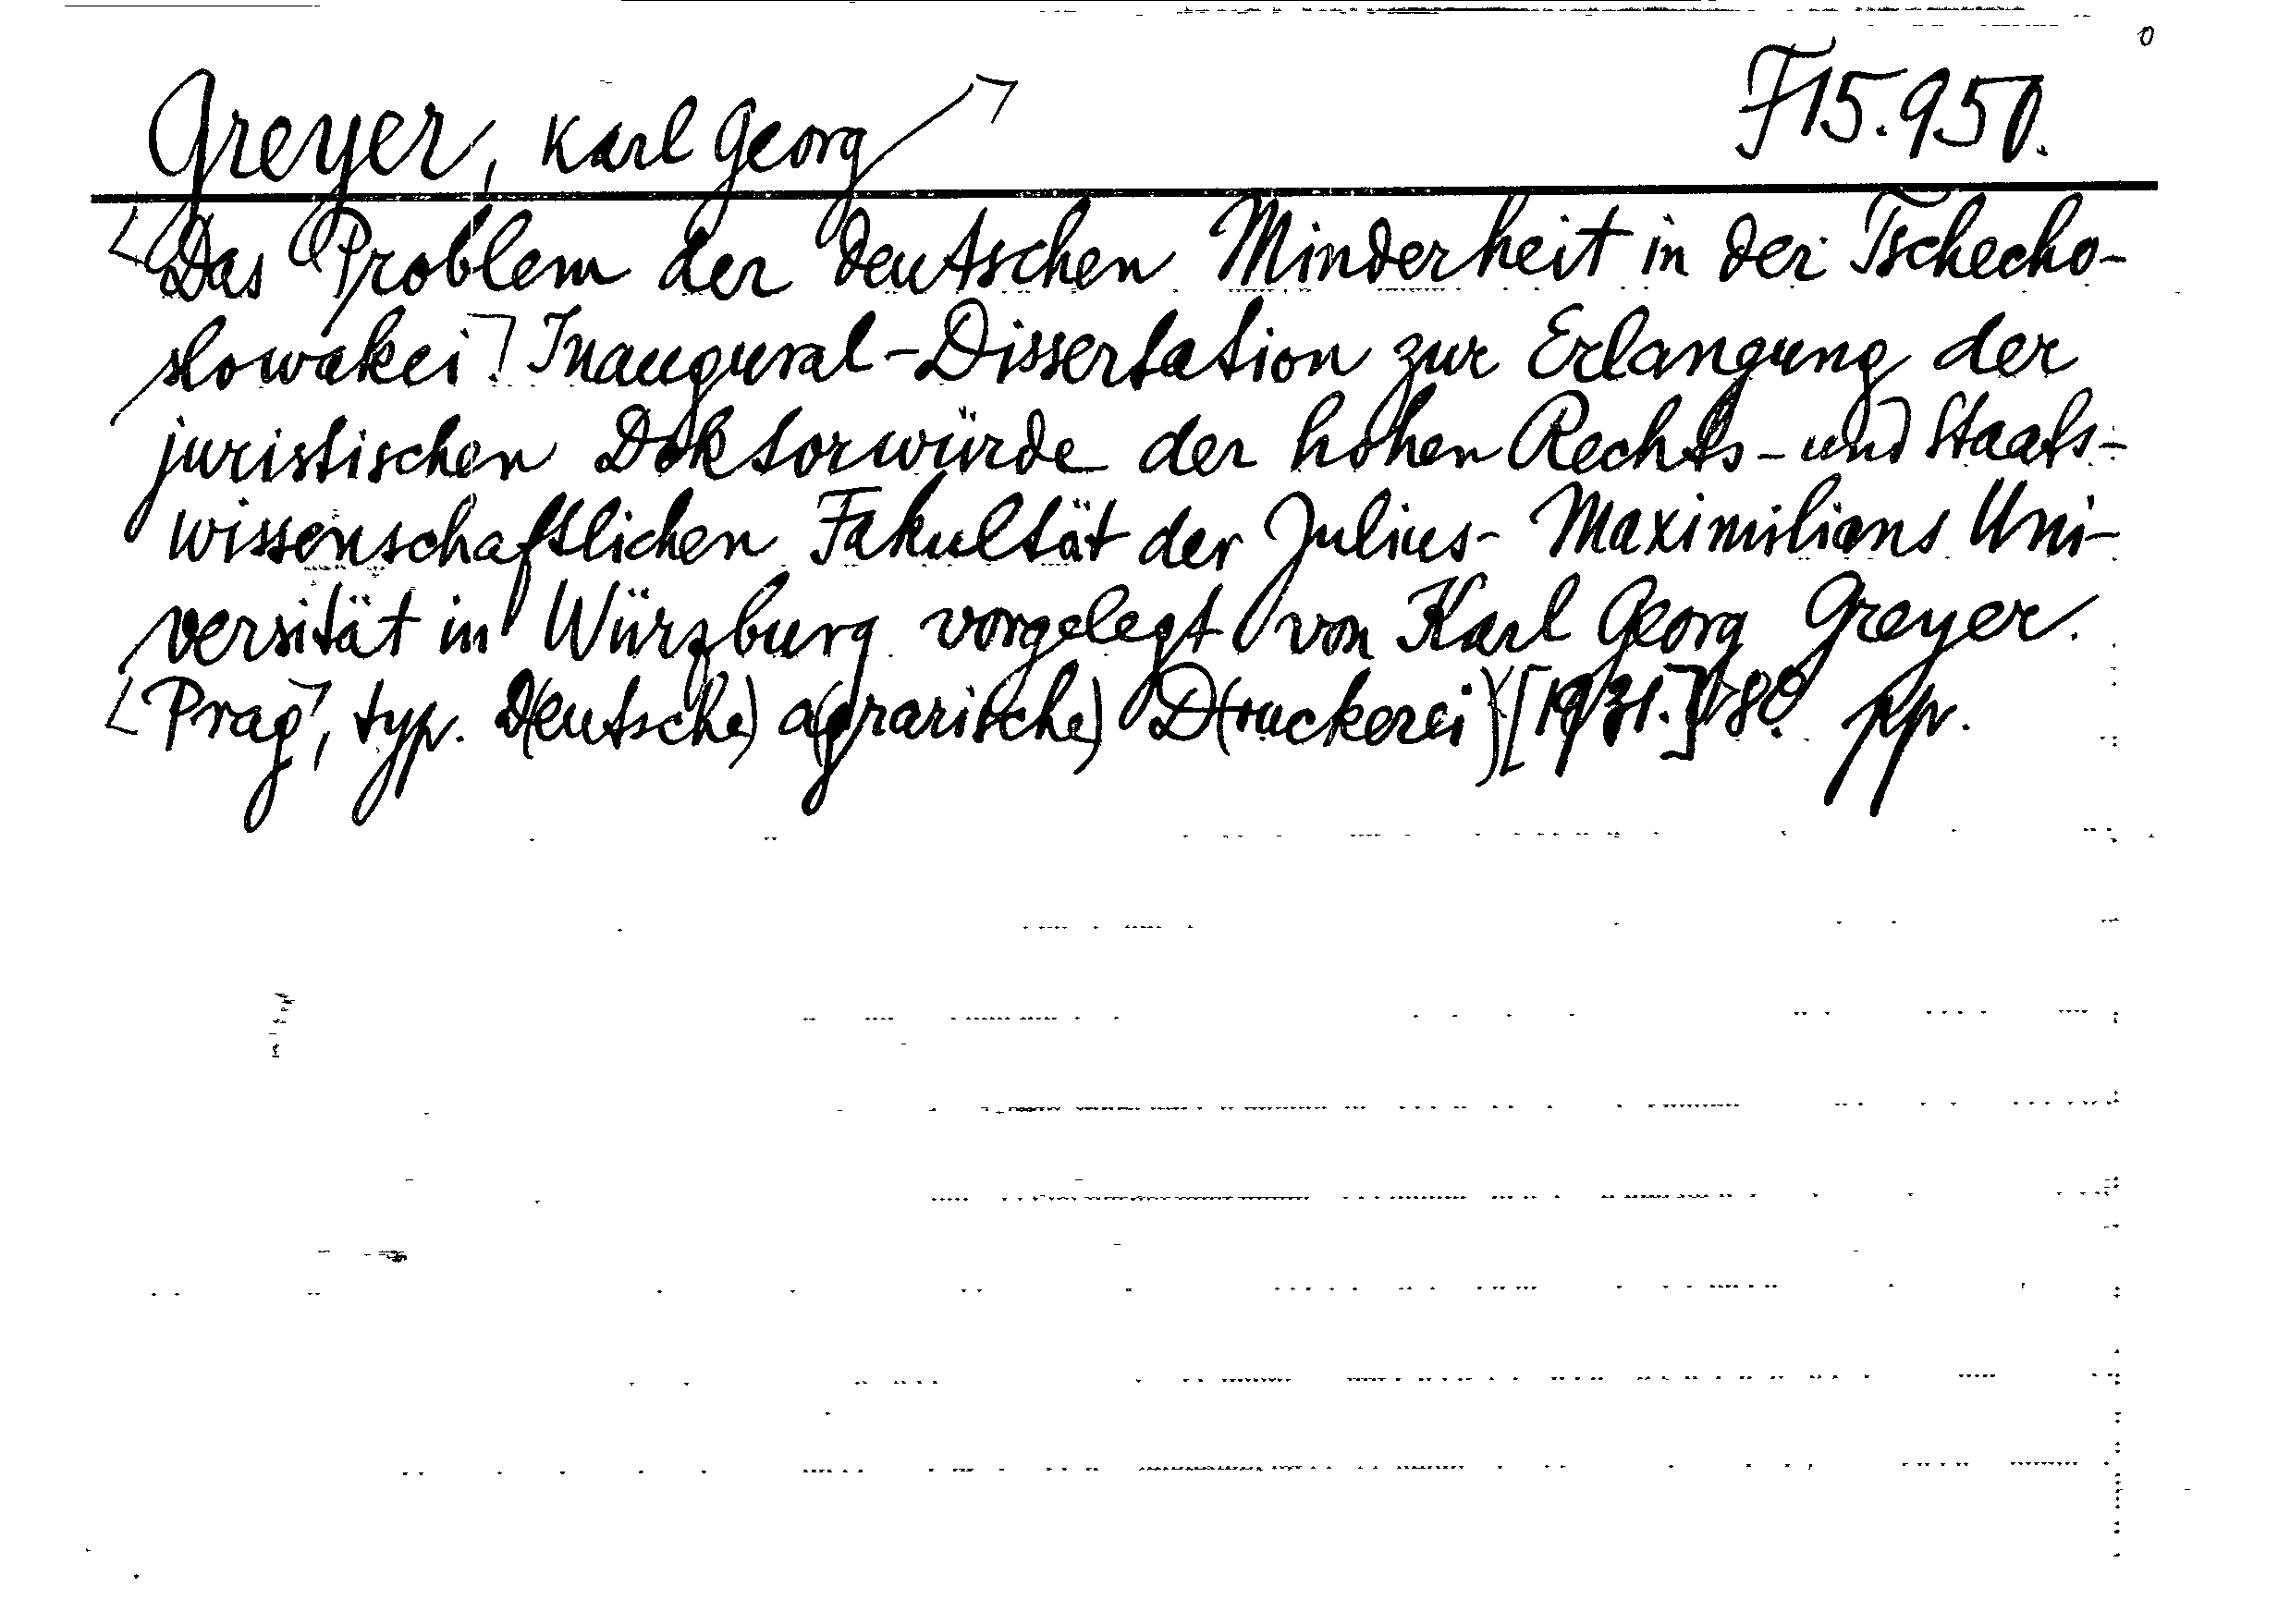 Greyer, Karl Georg F 15.950.
Das Problem der deutschen Minderheit in der Tschecho-
slowakei. Inaugural-Dissertation zur Erlangung der
juristischen Doktorwürde der hohen Rechts- und Staats-
wissenschaftlichen Fakultät der Julius-Maximilians Uni-
versität in Würzburg vorgelegt von Karl Georg Greyer.
Prag, typ. D(eutsche) a(grarische) D(ruckerei) [1931.] 8º pp.